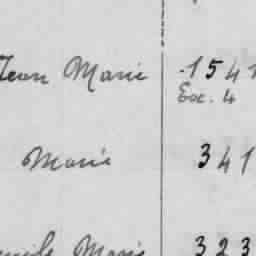 Jean Marie 1541
Exc. 4
Marie 341
Marie 323